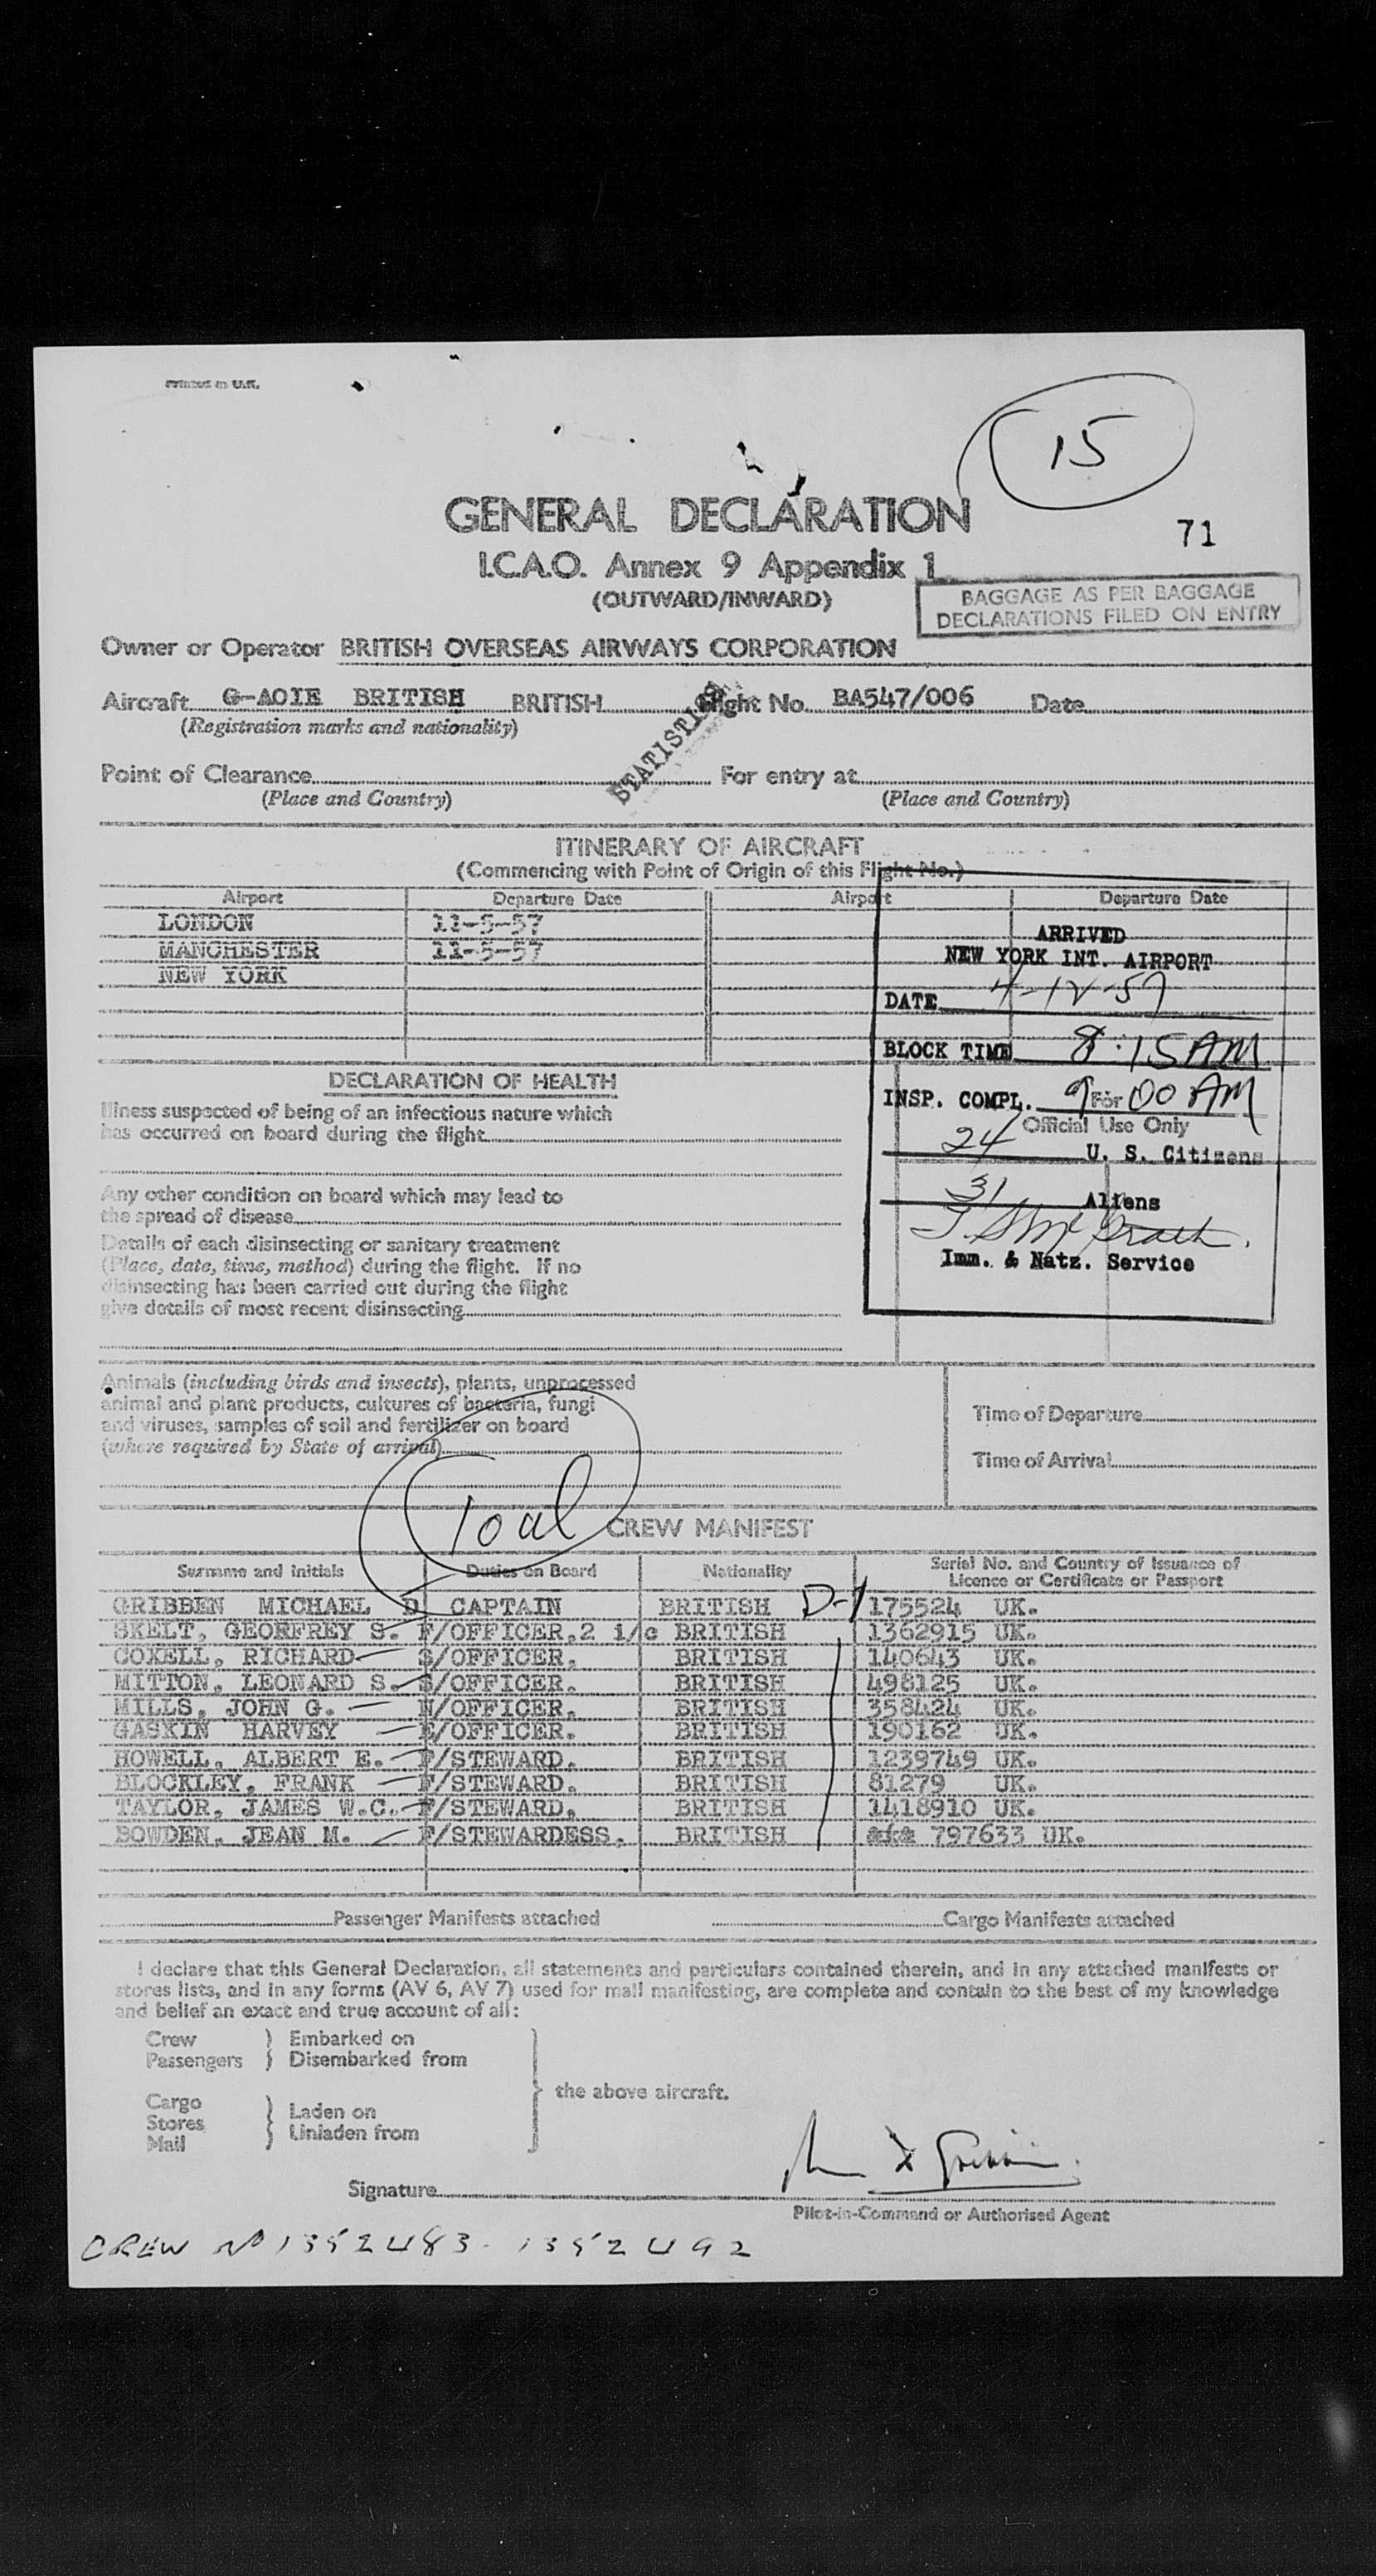 Printed in U.K.
15
GENERAL DECLARATION
71
I.C.A.O. Annex 9 Appendix 1
(OUTWARD/INWARD)
BAGGAGE AS PER BAGGAGE
DECLARATIONS FILED ON ENTRY
Owner or Operator BRITISH OVERSEAS AIRWAYS CORPORATION
Aircraft G-AOIE BRITISH BRITISH Flight No. BA547/006 Date
(Registration marks and nationality)
STATISTICS
Point of Clearance For entry at
(Place and Country) (Place and Country)
ITINERARY OF AIRCRAFT
(Commencing with Point of Origin of this Flight No.)
Airport Departure Date Airport Departure Date
LONDON 11-5-57
MANCHESTER 11-5-57
NEW YORK
ARRIVED
NEW YORK INT. AIRPORT
DATE 4-12-57
BLOCK TIME 8:15 AM
INSP. COMPL. 9:00 AM
For
Official Use Only
24 U. S. Citizens
31 Aliens
Imm. & Natz. Service
DECLARATION OF HEALTH
Illness suspected of being of an infectious nature which
has occurred on board during the flight
Any other condition on board which may lead to
the spread of disease
Details of each disinsecting or sanitary treatment
(Place, date, time, method) during the flight. If no
disinsecting has been carried out during the flight
give details of most recent disinsecting
Animals (including birds and insects), plants, unprocessed
animal and plant products, cultures of bacteria, fungi
and viruses, samples of soil and fertilizer on board
(where required by State of arrival)
Time of Departure
Time of Arrival
CREW MANIFEST
Surname and Initials Duties on Board Nationality Serial No. and Country of Issuance of
Licence or Certificate or Passport
GRIBBEN MICHAEL D CAPTAIN BRITISH D-1 175524 UK.
SKELT, GEORFREY S. F/OFFICER,2 i/c BRITISH 1362915 UK.
COXELL, RICHARD S/OFFICER. BRITISH 140643 UK.
MITTON, LEONARD S. S/OFFICER. BRITISH 498125 UK.
MILLS, JOHN G. N/OFFICER. BRITISH 358424 UK.
GASKIN HARVEY E/OFFICER. BRITISH 190162 UK.
HOWELL, ALBERT E. F/STEWARD. BRITISH 1239749 UK.
BLOCKLEY, FRANK F/STEWARD. BRITISH 81279 UK.
TAYLOR, JAMES W.C. F/STEWARD. BRITISH 1418910 UK.
BOWDEN, JEAN M. F/STEWARDESS. BRITISH 797633 UK.
Passenger Manifests attached Cargo Manifests attached
I declare that this General Declaration, all statements and particulars contained therein, and in any attached manifests or
stores lists, and in any forms (AV 6, AV 7) used for mail manifesting, are complete and contain to the best of my knowledge
and belief an exact and true account of all:
Crew } Embarked on
Passengers } Disembarked from
the above aircraft.
Cargo
Stores } Laden on
Mail } Unladen from
Signature
Pilot-in-Command or Authorised Agent
CREW No 1352483 - 1352492